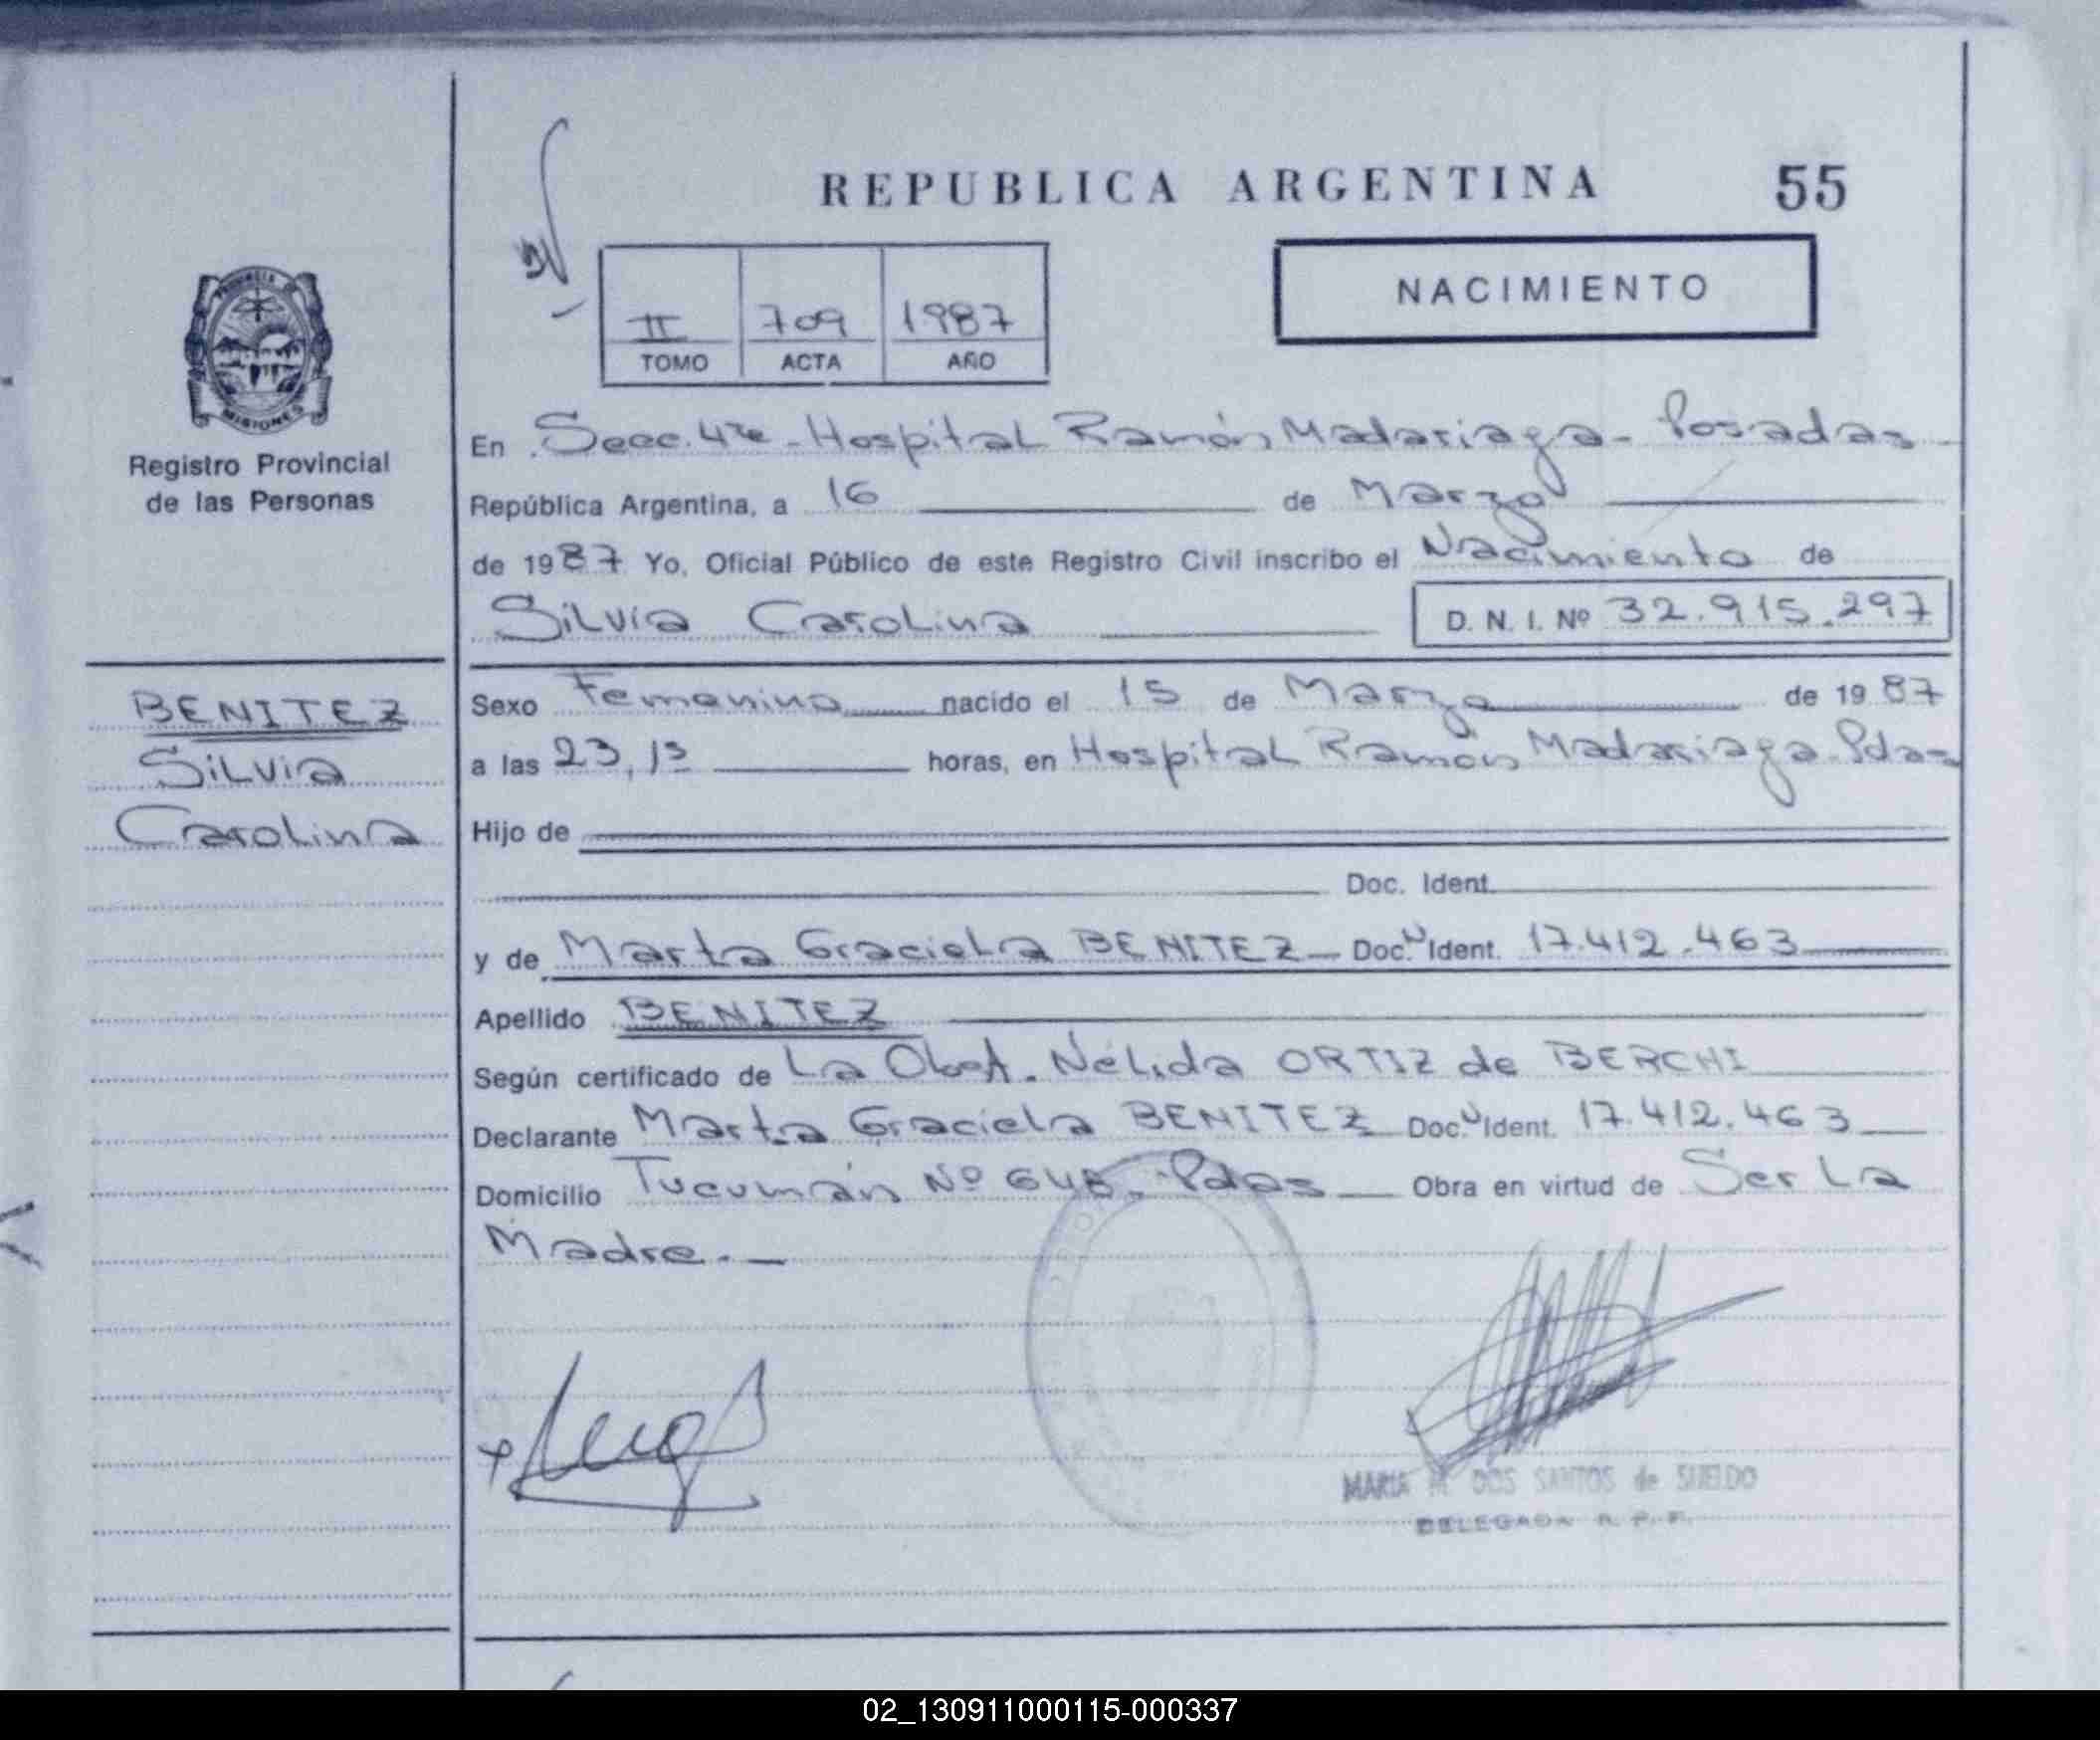 REPUBLICA ARGENTINA 55
PROVINCIA DE
MISIONES
Registro Provincial
de las Personas
II 709 1987
TOMO ACTA AÑO
NACIMIENTO
En Secc. 4ta - Hospital Ramón Madariaga - Posadas
República Argentina, a 16 de Marzo
de 1987 Yo, Oficial Público de este Registro Civil inscribo el Nacimiento de
Silvia Carolina D. N. I. Nº 32.915.297
BENITEZ
Silvia
Carolina
Sexo Femenino nacido el 15 de Marzo de 1987
a las 23,15 horas, en Hospital Ramón Madariaga - Pdas
Hijo de
Doc. Ident.
y de Marta Graciela BENITEZ - Doc. U Ident. 17.412.463
Apellido BENITEZ
Según certificado de La Obst. Nélida ORTIZ de BERCHI
Declarante Marta Graciela BENITEZ Doc. U Ident. 17.412.463
Domicilio Tucumán Nº - Pdas Obra en virtud de Ser La
Madre. -
MARIA M. DOS SANTOS de SUELDO
DELEGADA R. P. P.
02_130911000115-000337